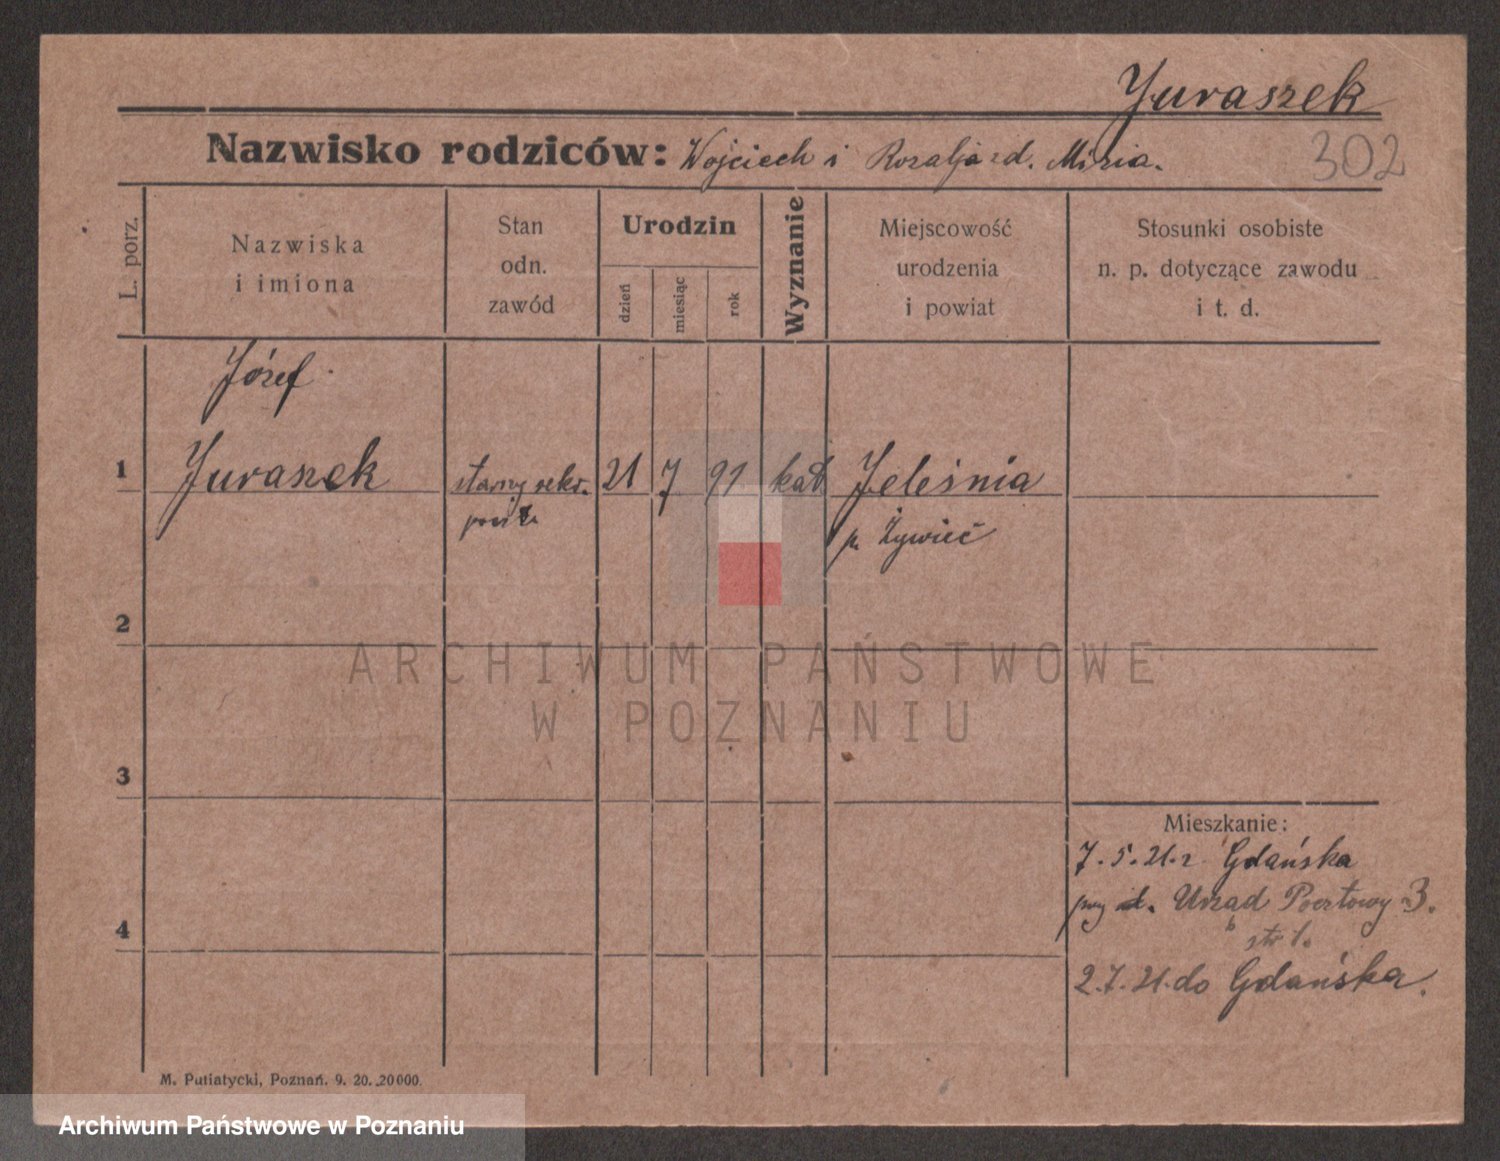 Juraszek
Nazwisko rodziców: Wojciech i Rozalja zd. Mizia.
302
L. porz.
Nazwiska
i imiona
Stan
odn.
zawód
Urodzin
dzień
miesiąc
rok
Wyznanie
Miejscowość
urodzenia
i powiat
Stosunki osobiste
n. p. dotyczące zawodu
i t. d.
Józef
1
Juraszek
starszy sekr.
poczt.
21
7
91
kat
Jeleśnia
p. Żywiec
2
3
4
Mieszkanie:
7.5.21.z Gdańska
Urząd Pocztowy 3.
2.7.21.do Gdańska.
M. Putiatycki, Poznań. 9. 20. 20000.
ARCHIWUM PAŃSTWOWE
W POZNANIU
Archiwum Państwowe w Poznaniu